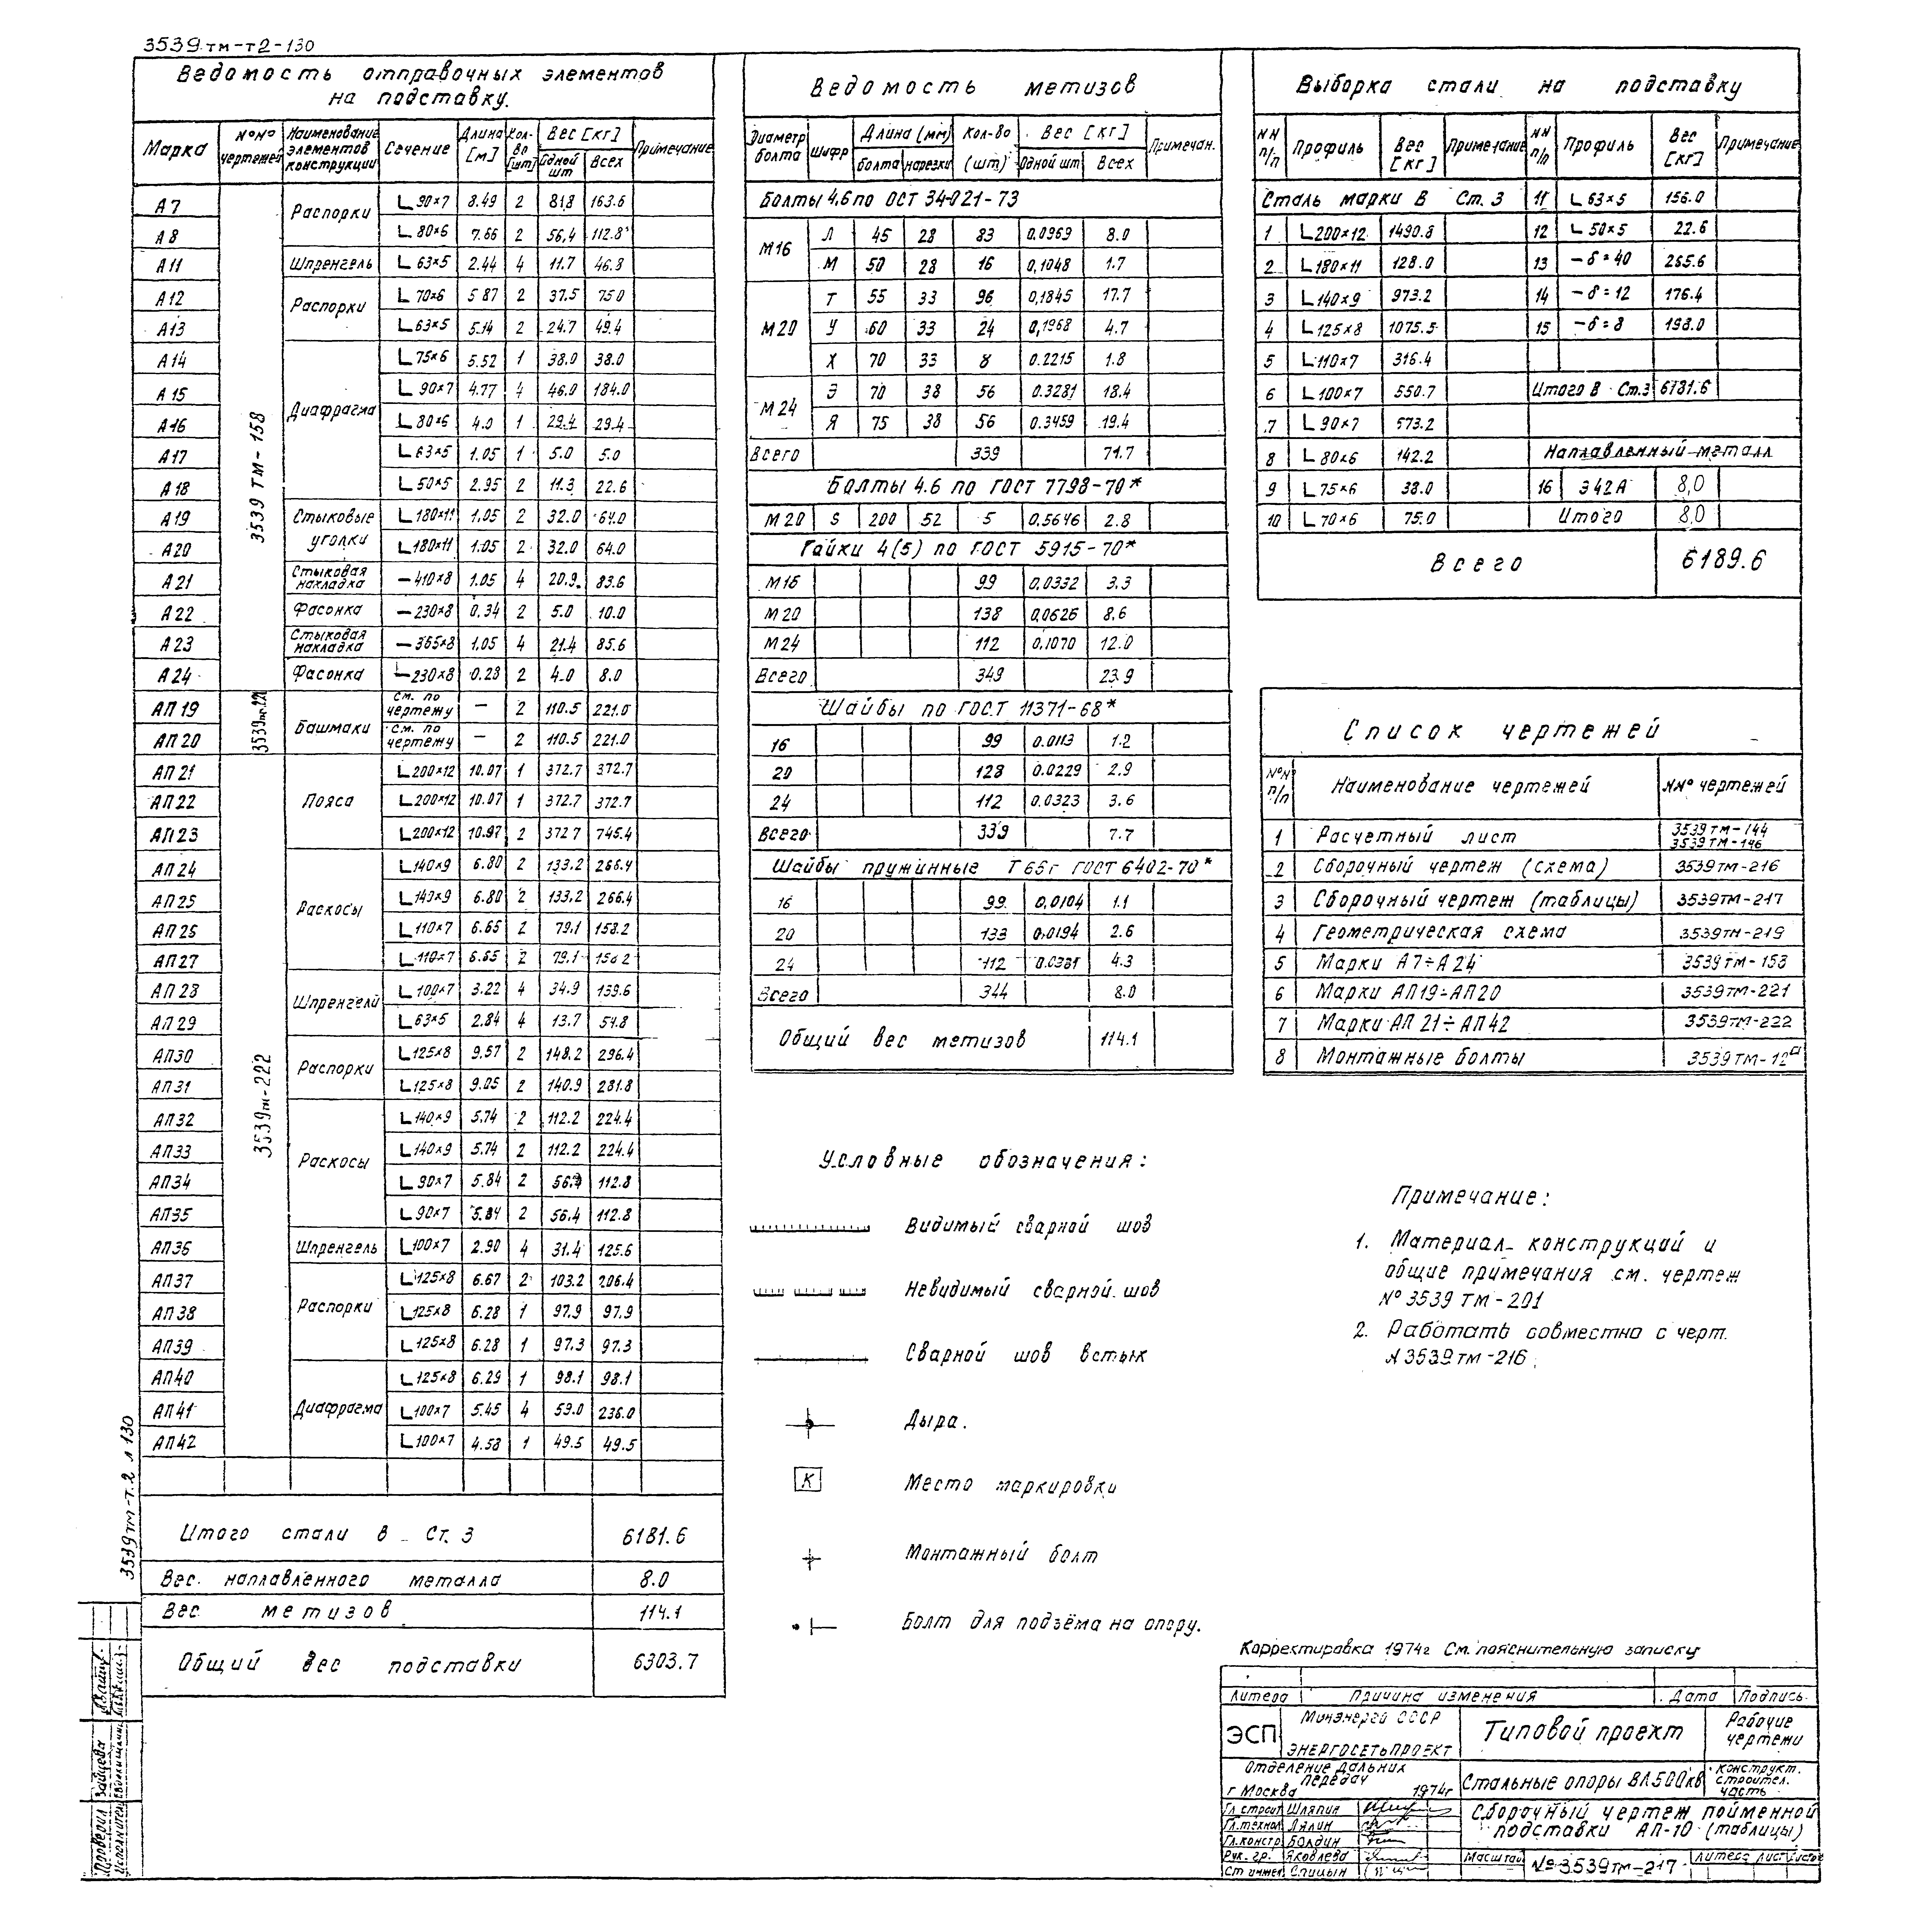 3539 тм-т2-130
Ведомость отправочных элементов
на подставку.
Марка | №№ чертежей | Наименование элементов конструкции | Сечение | Длина [м] | Кол-во [шт] | Вес [кг] Одной шт | Всех | Примечание
3539 тм-158
А7 | Распорки | L 90×7 | 8.49 | 2 | 81.8 | 163.6
А8 | L 80×6 | 7.66 | 2 | 56,4 | 112.8
А11 | Шпренгель | L 63×5 | 2.44 | 4 | 11.7 | 46.8
А12 | Распорки | L 70×6 | 5 87 | 2 | 37.5 | 75.0
А13 | L 63×5 | 5.14 | 2 | 24.7 | 49.4
А14 | Диафрагма | L 75×6 | 5.52 | 1 | 38.0 | 38.0
А15 | L 90×7 | 4.77 | 4 | 46.0 | 184.0
А16 | L 80×6 | 4.0 | 1 | 29.4 | 29.4
А17 | L 63×5 | 1.05 | 1 | 5.0 | 5.0
А18 | L 50×5 | 2.95 | 2 | 11.3 | 22.6
А19 | Стыковые уголки | L 180×11 | 1,05 | 2 | 32.0 | 64.0
А20 | L 180×11 | 1.05 | 2 | 32.0 | 64.0
А21 | Стыковая накладка | – 410×8 | 1.05 | 4 | 20.9 | 83.6
А22 | Фасонка | – 230×8 | 0.34 | 2 | 5.0 | 10.0
А23 | Стыковая накладка | – 365×8 | 1.05 | 4 | 21.4 | 85.6
А24 | Фасонка | – 230×8 | 0.28 | 2 | 4.0 | 8.0
3539тм-221
АП19 | Башмаки | см. по чертежу | – | 2 | 110.5 | 221.0
АП20 | см. по чертежу | – | 2 | 110.5 | 221.0
3539тм-222
АП21 | Пояса | L 200×12 | 10.07 | 1 | 372.7 | 372.7
АП22 | L 200×12 | 10.07 | 1 | 372.7 | 372.7
АП23 | L 200×12 | 10.97 | 2 | 372 7 | 745.4
АП24 | Раскосы | L 140×9 | 6.80 | 2 | 133.2 | 266.4
АП25 | L 140×9 | 6.80 | 2 | 133.2 | 266.4
АП26 | L 110×7 | 6.65 | 2 | 79.1 | 158.2
АП27 | L 110×7 | 6.65 | 2 | 79.1 | 158 2
АП28 | Шпренгели | L 100×7 | 3.22 | 4 | 34.9 | 139.6
АП29 | L 63×5 | 2.84 | 4 | 13.7 | 54.8
АП30 | Распорки | L 125×8 | 9.57 | 2 | 148.2 | 296.4
АП31 | L 125×8 | 9.05 | 2 | 140.9 | 281.8
АП32 | Раскосы | L 140×9 | 5.74 | 2 | 112.2 | 224.4
АП33 | L 140×9 | 5.74 | 2 | 112.2 | 224.4
АП34 | L 90×7 | 5.84 | 2 | 56.4 | 112.8
АП35 | L 90×7 | 5.84 | 2 | 56.4 | 112.8
АП36 | Шпренгель | L 100×7 | 2.90 | 4 | 31.4 | 125.6
АП37 | Распорки | L 125×8 | 6.67 | 2 | 103.2 | 206.4
АП38 | L 125×8 | 6.28 | 1 | 97.9 | 97.9
АП39 | L 125×8 | 6.28 | 1 | 97.3 | 97.3
АП40 | Диафрагма | L 125×8 | 6.29 | 1 | 98.1 | 98.1
АП41 | L 100×7 | 5.45 | 4 | 59.0 | 236.0
АП42 | L 100×7 | 4.58 | 1 | 49.5 | 49.5
Итого стали в Ст. 3 | 6181.6
Вес наплавленного металла | 8.0
Вес метизов | 114.1
Общий вес подставки | 6303.7
Ведомость метизов
Диаметр болта | Шифр | Длина (мм) болта | нарезки | Кол-во (шт) | Вес [кг] Одной шт | Всех | Примечан.
Болты 4.6 по ОСТ 34-021-73
М16 | Л | 45 | 28 | 83 | 0.0969 | 8.0
М | 50 | 28 | 16 | 0,1048 | 1.7
М20 | Т | 55 | 33 | 96 | 0,1845 | 17.7
У | 60 | 33 | 24 | 0,1968 | 4.7
Х | 70 | 33 | 8 | 0.2215 | 1.8
М24 | Э | 70 | 38 | 56 | 0.3281 | 18.4
Я | 75 | 38 | 56 | 0.3459 | 19.4
Всего | 339 | 71.7
Болты 4.6 по ГОСТ 7798-70*
М20 | S | 200 | 52 | 5 | 0,5646 | 2.8
Гайки 4(5) по ГОСТ 5915-70*
М16 | 99 | 0,0332 | 3.3
М20 | 138 | 0,0626 | 8,6
М24 | 112 | 0,1070 | 12.0
Всего | 349 | 23.9
Шайбы по ГОСТ 11371-68*
16 | 99 | 0.0113 | 1.2
20 | 128 | 0.0229 | 2.9
24 | 112 | 0.0323 | 3.6
Всего | 339 | 7.7
Шайбы пружинные Т 65г ГОСТ 6402-70*
16 | 99 | 0,0104 | 1.1
20 | 133 | 0.0194 | 2.6
24 | 112 | 0.0381 | 4.3
Всего | 344 | 8.0
Общий вес метизов | 114.1
Условные обозначения:
Видимый сварной шов
Невидимый сварной шов
Сварной шов встык
Дыра.
К Место маркировки
Монтажный болт
Болт для подъёма на опору.
Выборка стали на подставку
NN п/п | Профиль | Вес [кг] | Примечание | NN п/п | Профиль | Вес [кг] | Примечание
Сталь марки В Ст. 3 | 11 | L 63×5 | 156.0
1 | L 200×12 | 1490.8 | 12 | L 50×5 | 22.6
2 | L 180×11 | 128.0 | 13 | – δ = 40 | 265.6
3 | L 140×9 | 973.2 | 14 | – δ = 12 | 176.4
4 | L 125×8 | 1075.5 | 15 | – δ = 8 | 198.0
5 | L 110×7 | 316.4
6 | L 100×7 | 550.7 | Итого В Ст.3 | 6181.6
7 | L 90×7 | 573.2
8 | L 80×6 | 142.2 | Наплавленный металл
9 | L 75×6 | 38.0 | 16 | Э42А | 8,0
10 | L 70×6 | 75.0 | Итого | 8,0
Всего | 6189.6
Список чертежей
№№ п/п | Наименование чертежей | №№ чертежей
1 | Расчетный лист | 3539 тм-144 3539 тм-146
2 | Сборочный чертеж (схема) | 3539тм-216
3 | Сборочный чертеж (таблицы) | 3539тм-217
4 | Геометрическая схема | 3539тм-219
5 | Марки А7÷А24 | 3539тм-158
6 | Марки АП19÷АП20 | 3539тм-221
7 | Марки АП21÷АП42 | 3539тм-222
8 | Монтажные болты
Примечание:
1. Материал конструкций и
общие примечания см. чертеж
№ 3539 тм-201
2. Работать совместно с черт.
№ 3539 тм-216.
Корректировка 1974г См. пояснительную записку
Литера | Причина изменения | Дата | Подпись
ЭСП | Минэнерго СССР ЭНЕРГОСЕТЬПРОЕКТ | Типовой проект | Рабочие чертежи
Отделение дальних передач
г Москва 1974г | Стальные опоры ВЛ500кв | Конструкт. строител. часть
Гл строит | Шляпин | Сборочный чертеж пойменной
Гл.технол | Лялин | подставки АП-10 (таблицы)
Гл.констр | Болдин
Рук. гр. | Яковлева | Масштаб | № 3539тм-217 | Литера | Лист | Листов
Ст инжен | Спицын
3539тм-т.2 л 130
Проверил Зайцева
Исполнитель